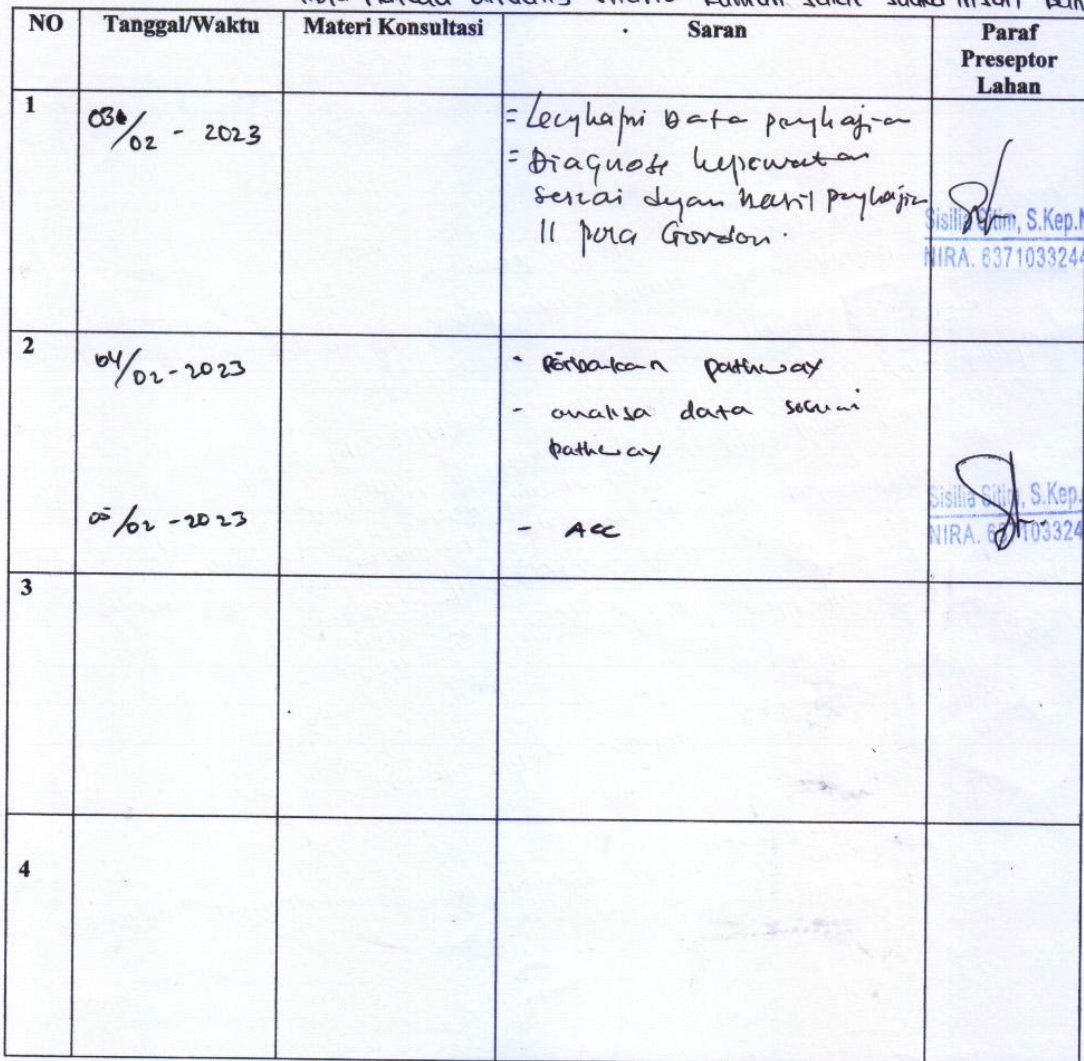 Rumah Sakit Suaka Insan
NO Tanggal/Waktu Materi Konsultasi Saran Paraf
Preseptor
Lahan
1 03/02 - 2023 = Lengkapi Data pengkajian
= Diagnosa keperawatan
sesuai dengan hasil pengkajian
11 pola Gordon.
Sisilia Sitim, S.Kep.N
NIRA. 6371033244
2 04/02 - 2023 - Perbaikan pathway
- analisa data sesuai
pathway
05/02 - 2023 - ACC
Sisilia Sitim, S.Kep.
NIRA. 10324
3
4